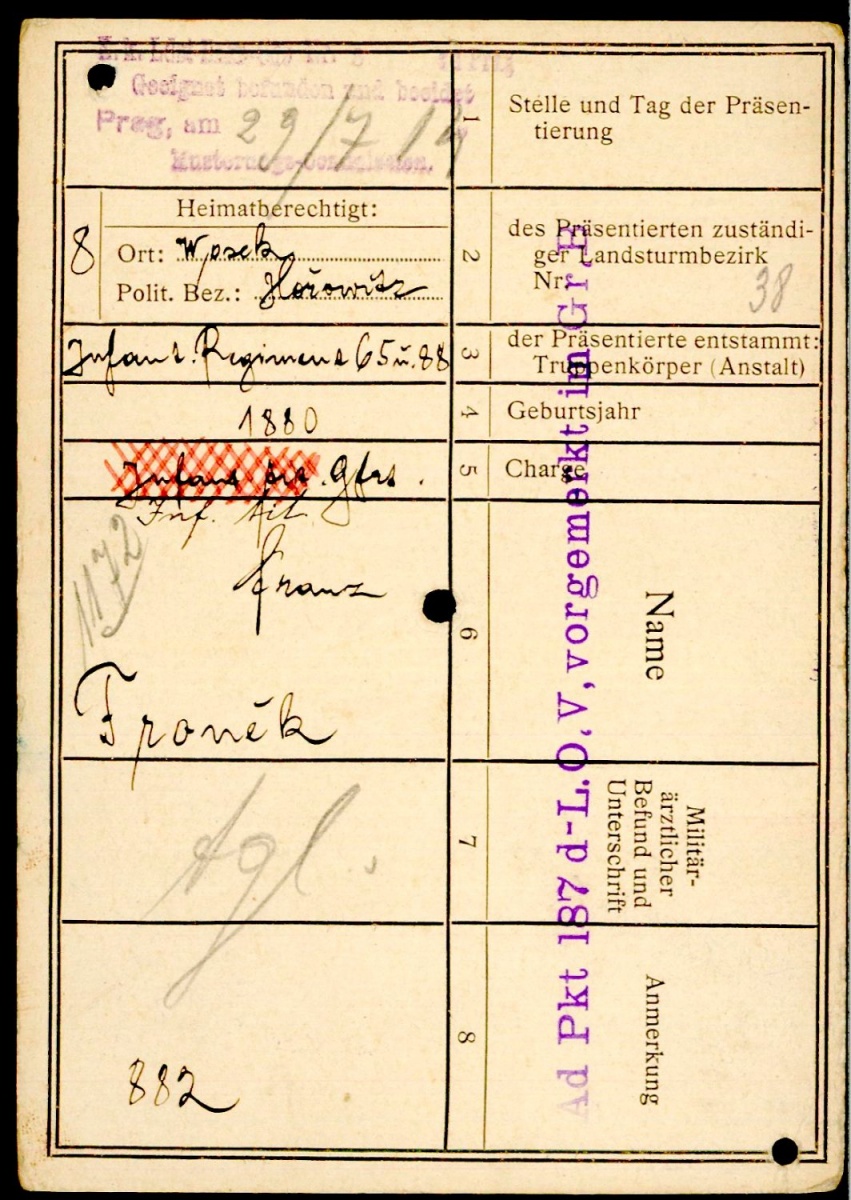 Geeignet befunden und beeidet
Prag, am 29/7 14
Musterungs-Commission.
1
Stelle und Tag der Präsen-
tierung
8
Heimatberechtigt:
Ort: Wosek
Polit. Bez.: Hořowitz
2
des Präsentierten zuständi-
ger Landsturmbezirk
Nr.
38
Infant. Regiment 65 u. 88
3
der Präsentierte entstammt:
Truppenkörper (Anstalt)
1880
4
Geburtsjahr
Infant. Gfrt.
5
Charge
Inf. tit.
1172
Franz
Froněk
6
Name
Tgl.
7
Militär-
ärztlicher
Befund und
Unterschrift
882
8
Anmerkung
Ad Pkt 187 d-L.O,V, vorgemerkt im Gr,B